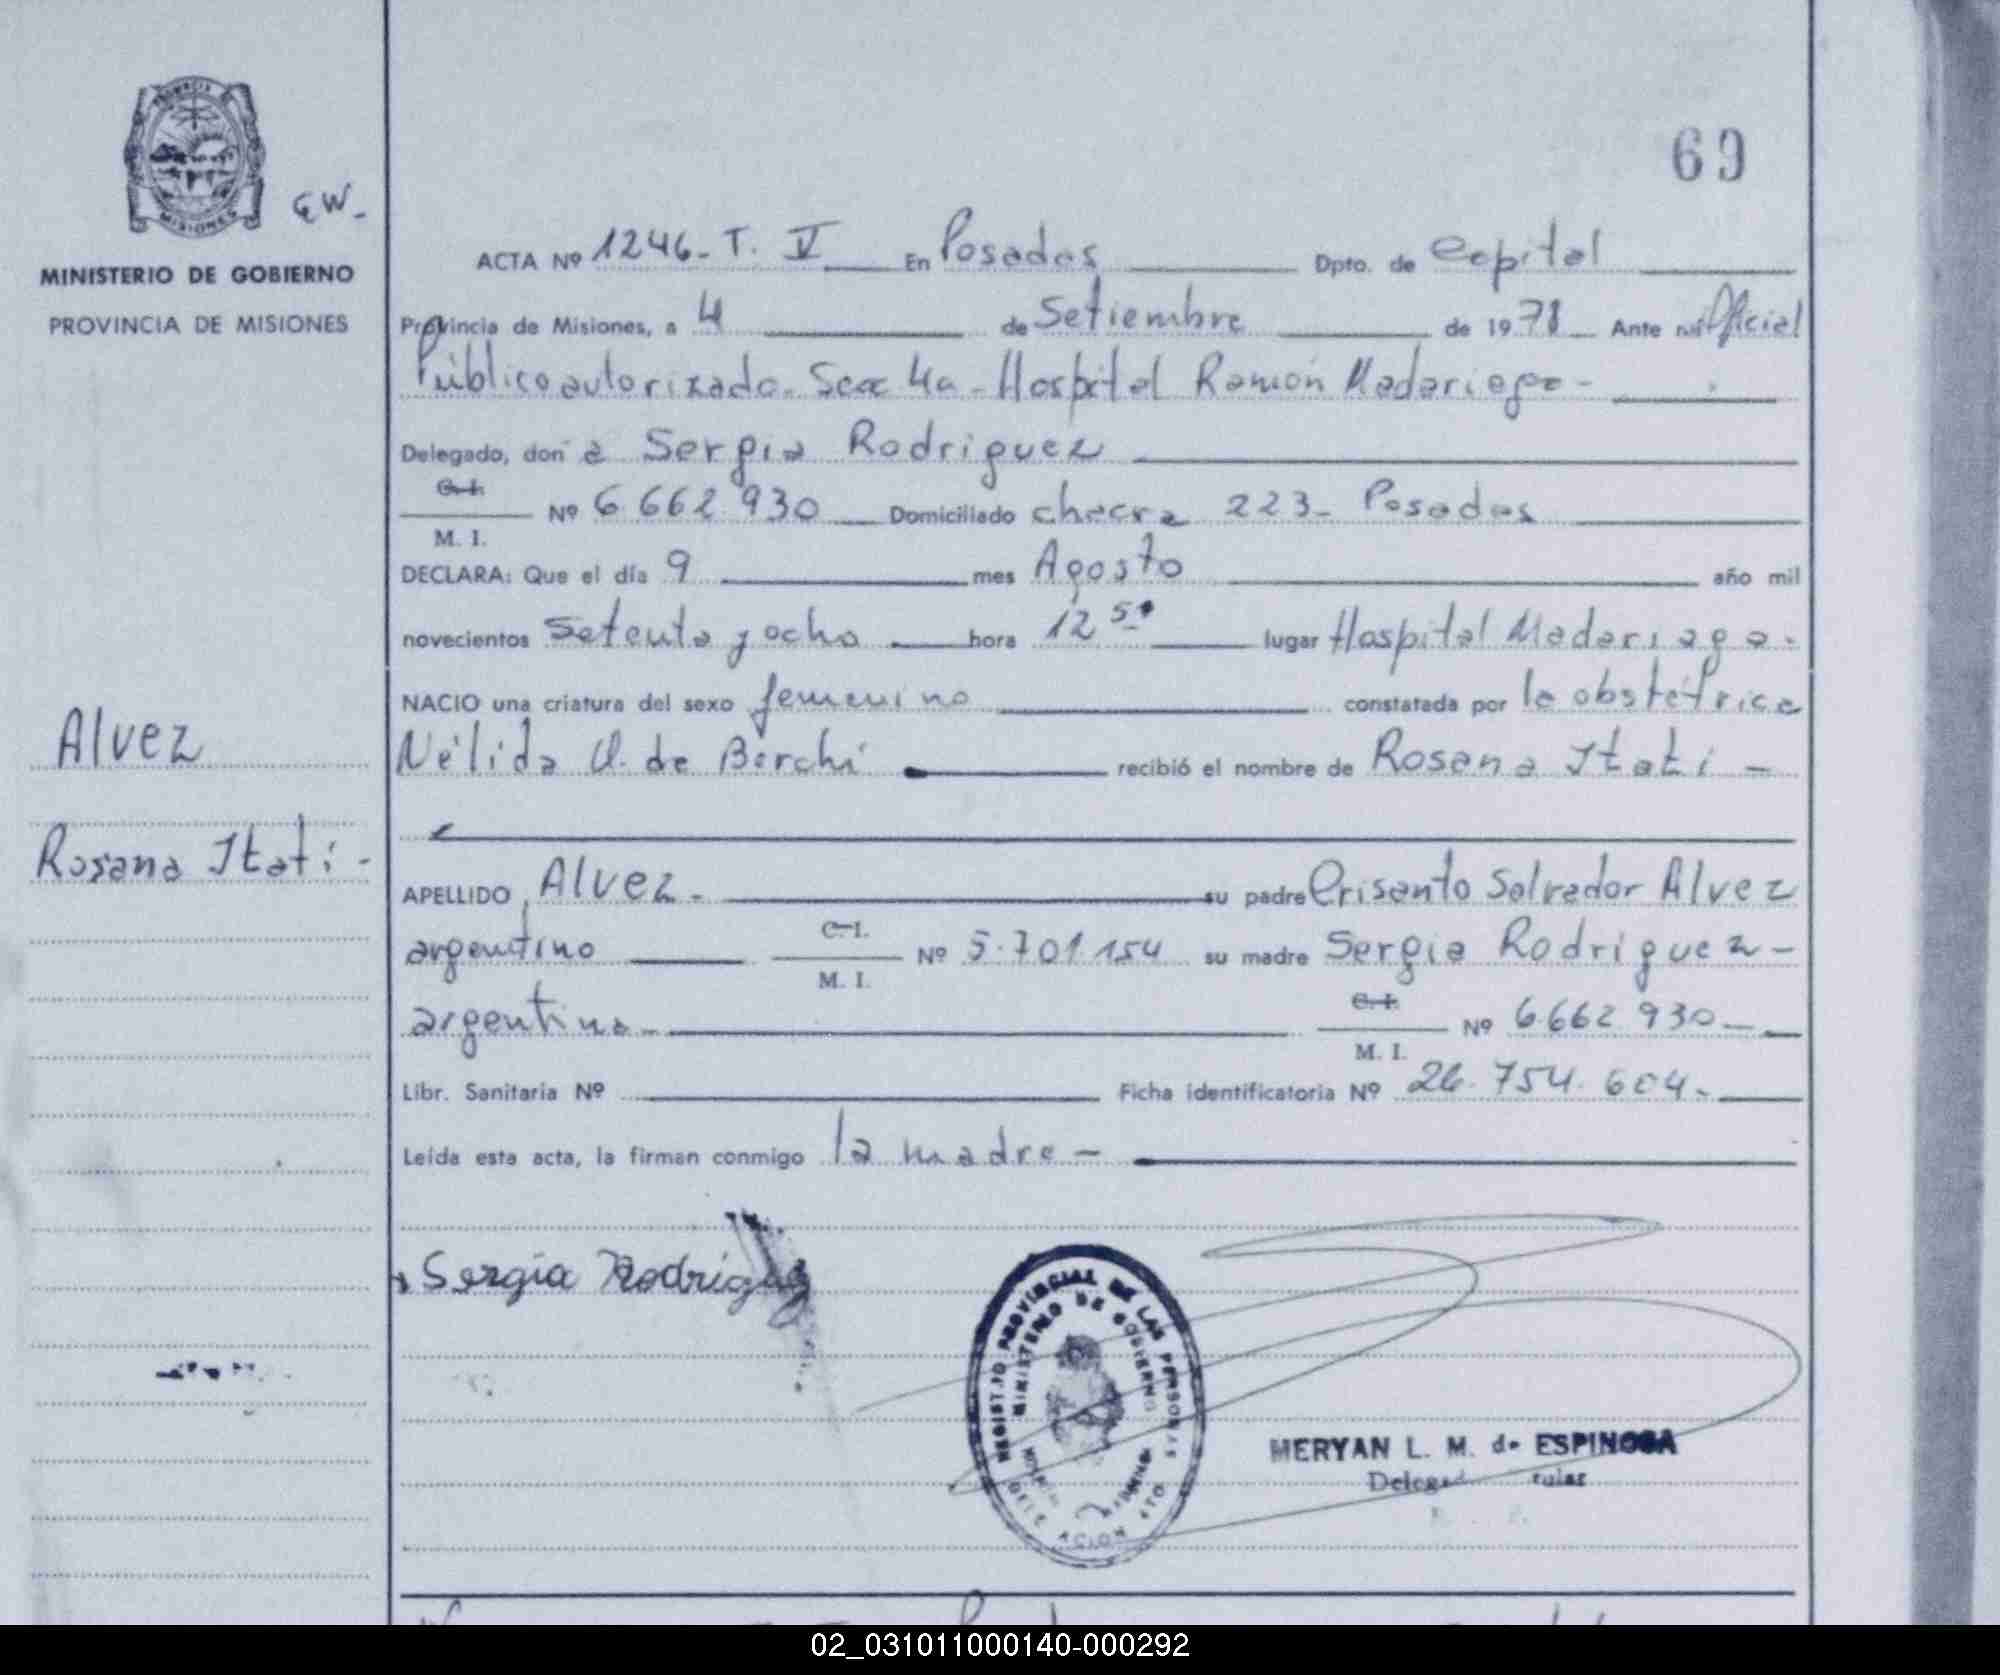 PROVINCIA
MISIONES
MINISTERIO DE GOBIERNO
PROVINCIA DE MISIONES
Alvez
Rosana Itatí -
69
ACTA Nº 1246 - T. V En Posadas Dpto. de Capital
Provincia de Misiones, a 4 de Setiembre de 1978 Ante mí Oficial
Público autorizado - Secc 4a - Hospital Ramón Madariaga -
Delegado, don a Sergia Rodriguez
C. I.
M. I. Nº 6.662.930 Domiciliado chacra 223 - Posadas
DECLARA: Que el día 9 mes Agosto año mil
novecientos setenta y ocho hora 12 50 lugar Hospital Madariaga -
NACIO una criatura del sexo femenino constatada por la obstétrica
Nélida U. de Borchi recibió el nombre de Rosana Itatí -
APELLIDO Alvez - su padre Crisanto Salvador Alvez
argentino C. I. M. I. Nº 5.701.154 su madre Sergia Rodriguez -
argentina - C. I. M. I. Nº 6.662.930 -
Libr. Sanitaria Nº Ficha identificatoria Nº 26.754.604 -
Leída esta acta, la firman conmigo la madre -
Sergia Rodriguez
REGISTRO PROVINCIAL DE LAS PERSONAS
MINISTERIO DE GOBIERNO
MERYAN L. M. de ESPINOSA
02_031011000140-000292